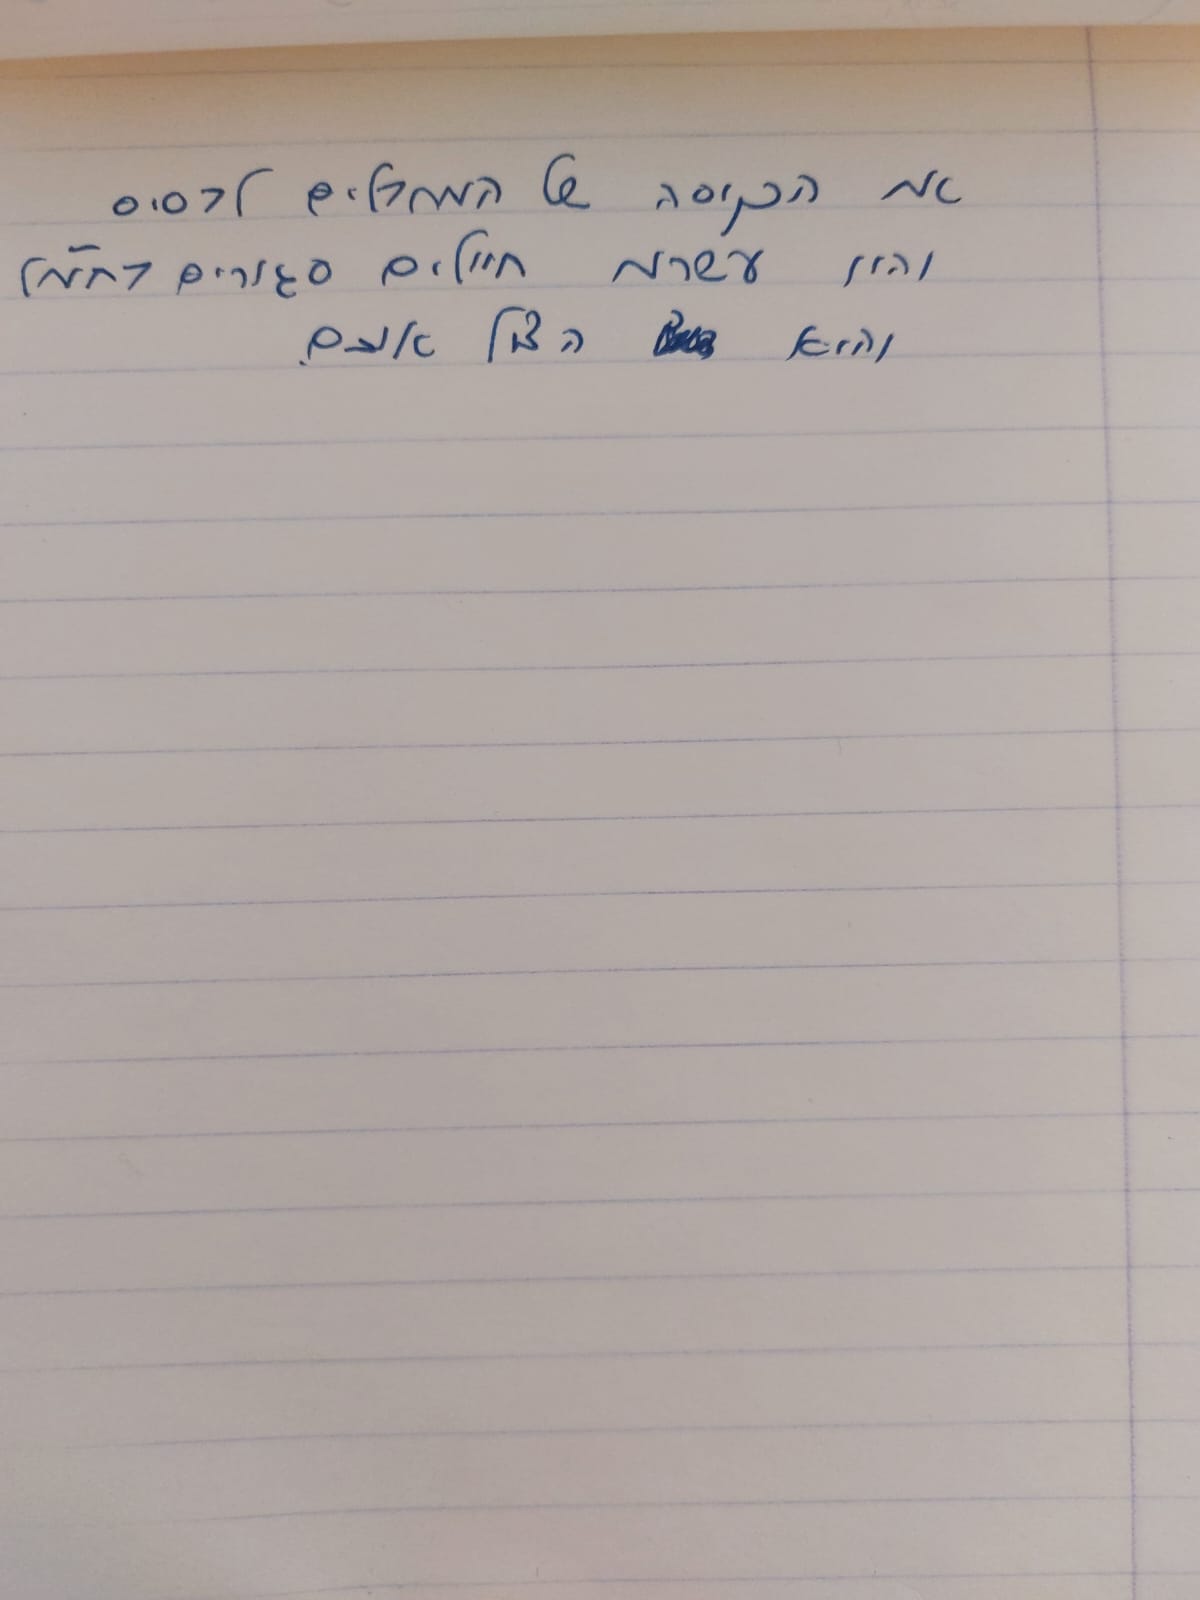 את הכניסה של המחבלים לבסיס
והיו עשרות חיילים סגורים בחמ"ל
והיא הציל אותם